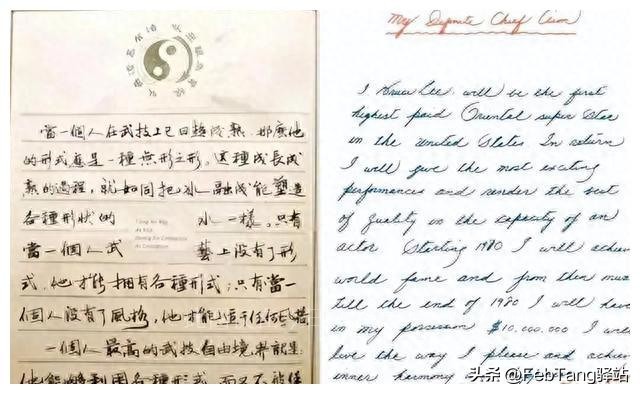 當一個人在武技上已日趨成熟，那麼他
的形式應是一種無形之形。這種成長成
熟的過程，就如同把冰融成能塑造
各種形狀的 水一樣。只有
當一個人武 藝上沒有了形
式，他才能擁有各種形式；只有當一
個人沒有了風格，他才能適于任何風格
一個人最高的武技自由境界就是：
他能夠利用各種形式，而又不被
My Definite Chief Aim
I Bruce Lee will be the first
highest paid Oriental super star
in the United States In return
I will give the most exciting
performances and render the best
of quality in the capacity of an
actor Starting 1970 I will achiev
world fame and from then
till the end of 1980 I will have
in my possession $10,000,000 I will
live the way I please and achiev
inner harmony
头条 @FebTang驿站